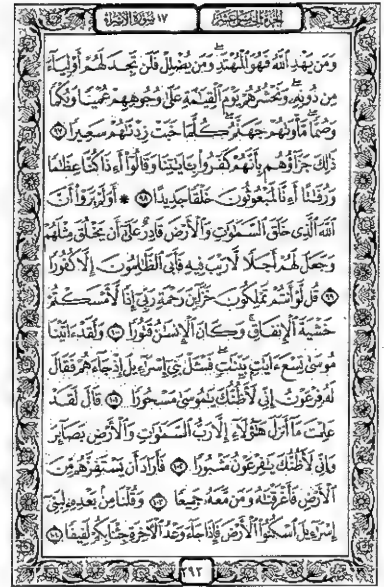 ١٧ سُورَةُ الإِسْرَاءِ الجُزْءُ الخَامِسَ عَشَرَ
وَمَن يَهْدِ ٱللَّهُ فَهُوَ ٱلْمُهْتَدِ وَمَن يُضْلِلْ فَلَن تَجِدَ لَهُمْ أَوْلِيَآءَ
مِن دُونِهِۦ وَنَحْشُرُهُمْ يَوْمَ ٱلْقِيَـٰمَةِ عَلَىٰ وُجُوهِهِمْ عُمْيًا وَبُكْمًا
وَصُمًّا مَّأْوَىٰهُمْ جَهَنَّمُ كُلَّمَا خَبَتْ زِدْنَـٰهُمْ سَعِيرًا ٩٧
ذَٰلِكَ جَزَآؤُهُم بِأَنَّهُمْ كَفَرُوا۟ بِـَٔايَـٰتِنَا وَقَالُوٓا۟ أَءِذَا كُنَّا عِظَـٰمًا
وَرُفَـٰتًا أَءِنَّا لَمَبْعُوثُونَ خَلْقًا جَدِيدًا ٩٨ ۞ أَوَلَمْ يَرَوْا۟ أَنَّ
ٱللَّهَ ٱلَّذِى خَلَقَ ٱلسَّمَـٰوَٰتِ وَٱلْأَرْضَ قَادِرٌ عَلَىٰٓ أَن يَخْلُقَ مِثْلَهُمْ
وَجَعَلَ لَهُمْ أَجَلًا لَّا رَيْبَ فِيهِ فَأَبَى ٱلظَّـٰلِمُونَ إِلَّا كُفُورًا
٩٩ قُل لَّوْ أَنتُمْ تَمْلِكُونَ خَزَآئِنَ رَحْمَةِ رَبِّىٓ إِذًا لَّأَمْسَكْتُمْ
خَشْيَةَ ٱلْإِنفَاقِ وَكَانَ ٱلْإِنسَـٰنُ قَتُورًا ١٠٠ وَلَقَدْ ءَاتَيْنَا
مُوسَىٰ تِسْعَ ءَايَـٰتٍۭ بَيِّنَـٰتٍ فَسْـَٔلْ بَنِىٓ إِسْرَٰٓءِيلَ إِذْ جَآءَهُمْ فَقَالَ
لَهُۥ فِرْعَوْنُ إِنِّى لَأَظُنُّكَ يَـٰمُوسَىٰ مَسْحُورًا ١٠١ قَالَ لَقَدْ
عَلِمْتَ مَآ أَنزَلَ هَـٰٓؤُلَآءِ إِلَّا رَبُّ ٱلسَّمَـٰوَٰتِ وَٱلْأَرْضِ بَصَآئِرَ
وَإِنِّى لَأَظُنُّكَ يَـٰفِرْعَوْنُ مَثْبُورًا ١٠٢ فَأَرَادَ أَن يَسْتَفِزَّهُم مِّنَ
ٱلْأَرْضِ فَأَغْرَقْنَـٰهُ وَمَن مَّعَهُۥ جَمِيعًا ١٠٣ وَقُلْنَا مِنۢ بَعْدِهِۦ لِبَنِىٓ
إِسْرَٰٓءِيلَ ٱسْكُنُوا۟ ٱلْأَرْضَ فَإِذَا جَآءَ وَعْدُ ٱلْـَٔاخِرَةِ جِئْنَا بِكُمْ لَفِيفًا ١٠٤
٢٩٢